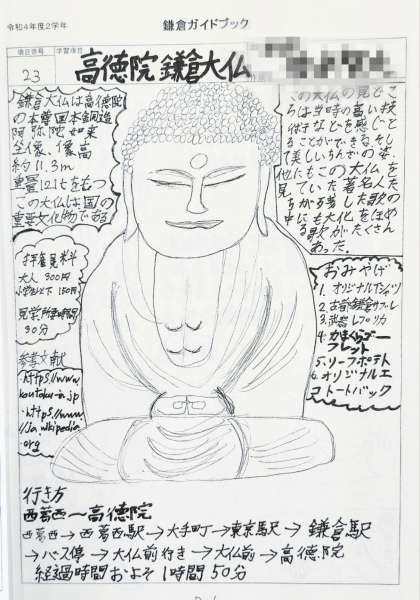 令和4年度2学年
鎌倉ガイドブック
項目番号
学習項目
23
高徳院 鎌倉大仏
鎌倉大仏は高徳院
の本尊国本銅造
阿弥陀如来
坐像、像高
約11.3m
重量121tをもつ
この大仏は国の
重要文化物である
この大仏の見どこ
ろは当時の高い技
術などを感じと
ることができる そし
て美しいちんざの姿、
他にもこの大仏を
見ていた著名人た
ちが残した歌の
中にも大仏をほめ
る歌がたくさん
あった。
拝観料
大人 300円
小学生以下 150円
見学所要時間
30分
参考文献
・https://www.
koutoku-in.jp
・https://www.
/ja.wikipedia.
org
おみやげ
1. オリジナルTシャツ
2. 古都鎌倉サブレ
3. 武器レプリカ
4. かまくらゴー
フレット
5. リーフポテト
6. オリジナルエ
コトートバック
行き方
西葛西〜高徳院
西葛西→西葛西駅→大手町→東京駅→鎌倉駅
→バス停→大仏前行き→大仏前→高徳院
経過時間およそ1時間50分